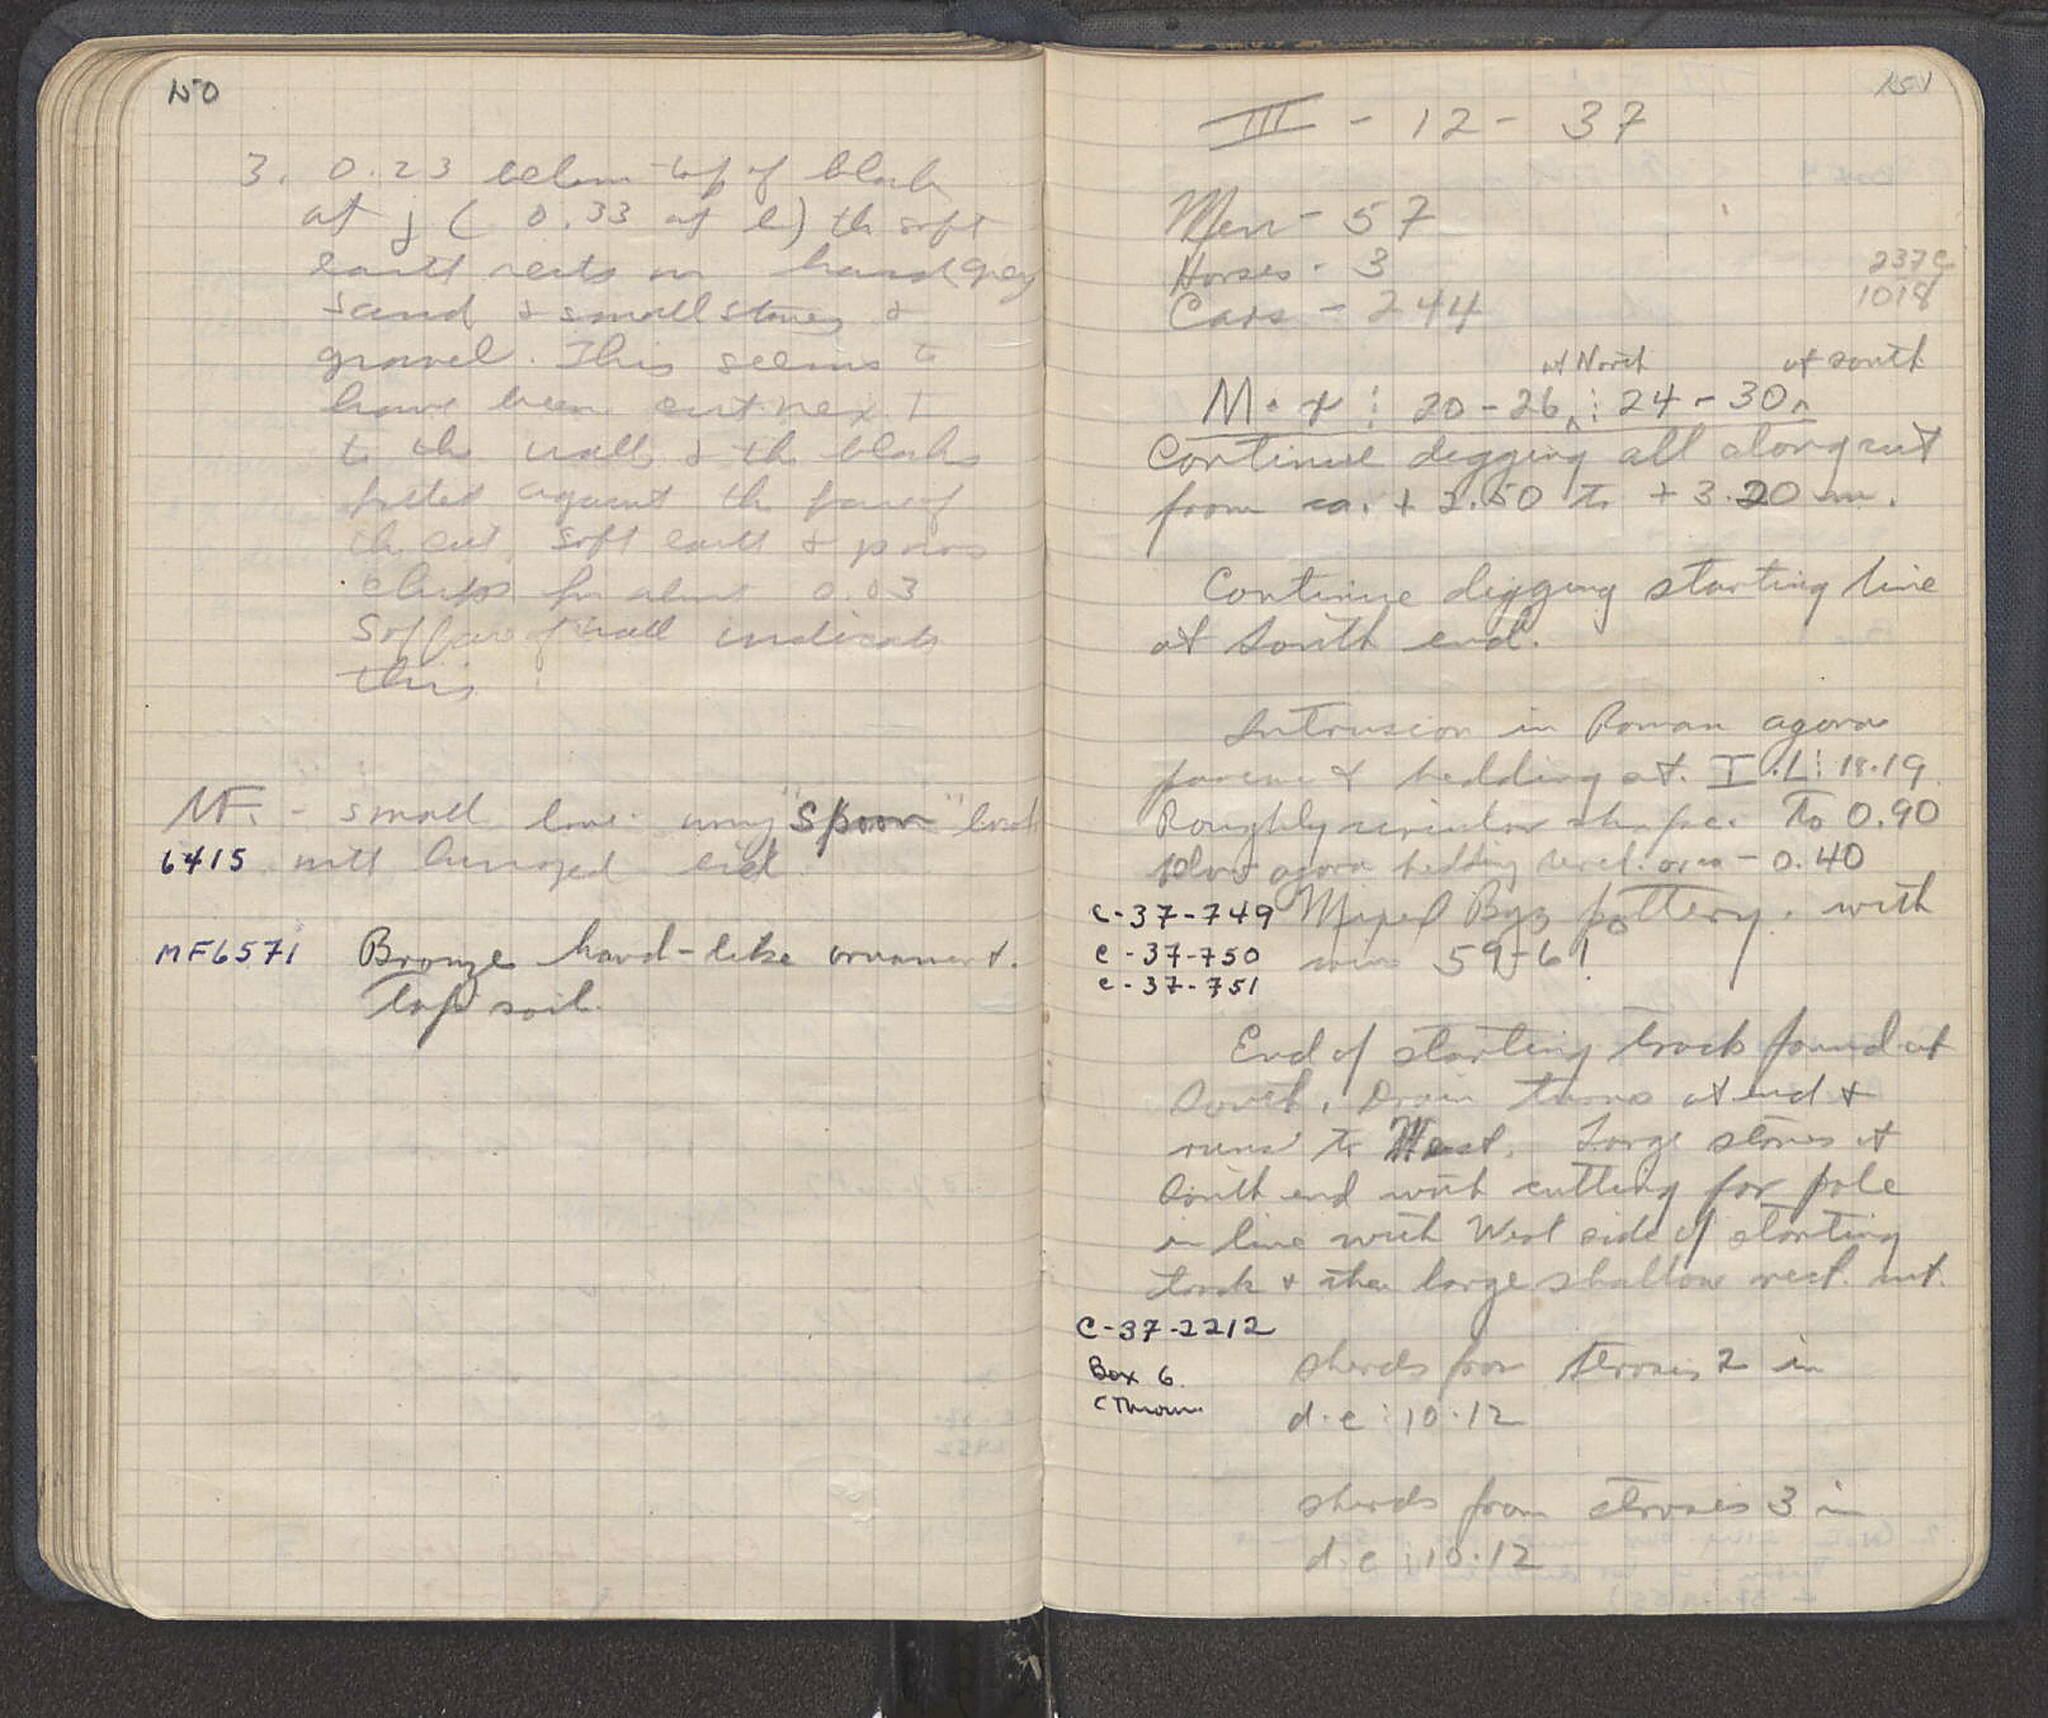 150
3. 0.23 below top of block
at j ( 0.33 at l) the soft
earth rests on hard grey
sand & small stones &
gravel. This seems to
have been cut next
to the wall & the blocks
fitted against the face of
the cut. Soft earth & poros
chips for about 0.03
S of face of wall indicate
this
MF. - small bone "spoon"
6415 with
MF6571 Bronze hand-like ornament.
Top soil.
151
III - 12 - 37
Men - 57
Horses - 3
Cars - 244
237c
1018
at North at south
M - : 20 - 26 : 24 - 30
Continue digging all along cut
from ca. + 2.50 to + 3.20 m.
Continue digging starting line
at South end.
Intrusion in Roman agora
pavement bedding at. I.L : 18.19
Roughly circular shape. To 0.90
below agora bedding level. area - 0.40
C-37-749 Mixed Byz pottery. with
C-37-750 coin 59-61
C-37-751
End of starting track found at
South. Drain turns at end &
runs to West. Large stones at
South end with cutting for pole
in line with West side of starting
track & then large shallow rect. cut.
C-37-2212
Box 6 sherds from stroses 2 in
d-e : 10-12
sherds from stroses 3 in
d-e : 10-12